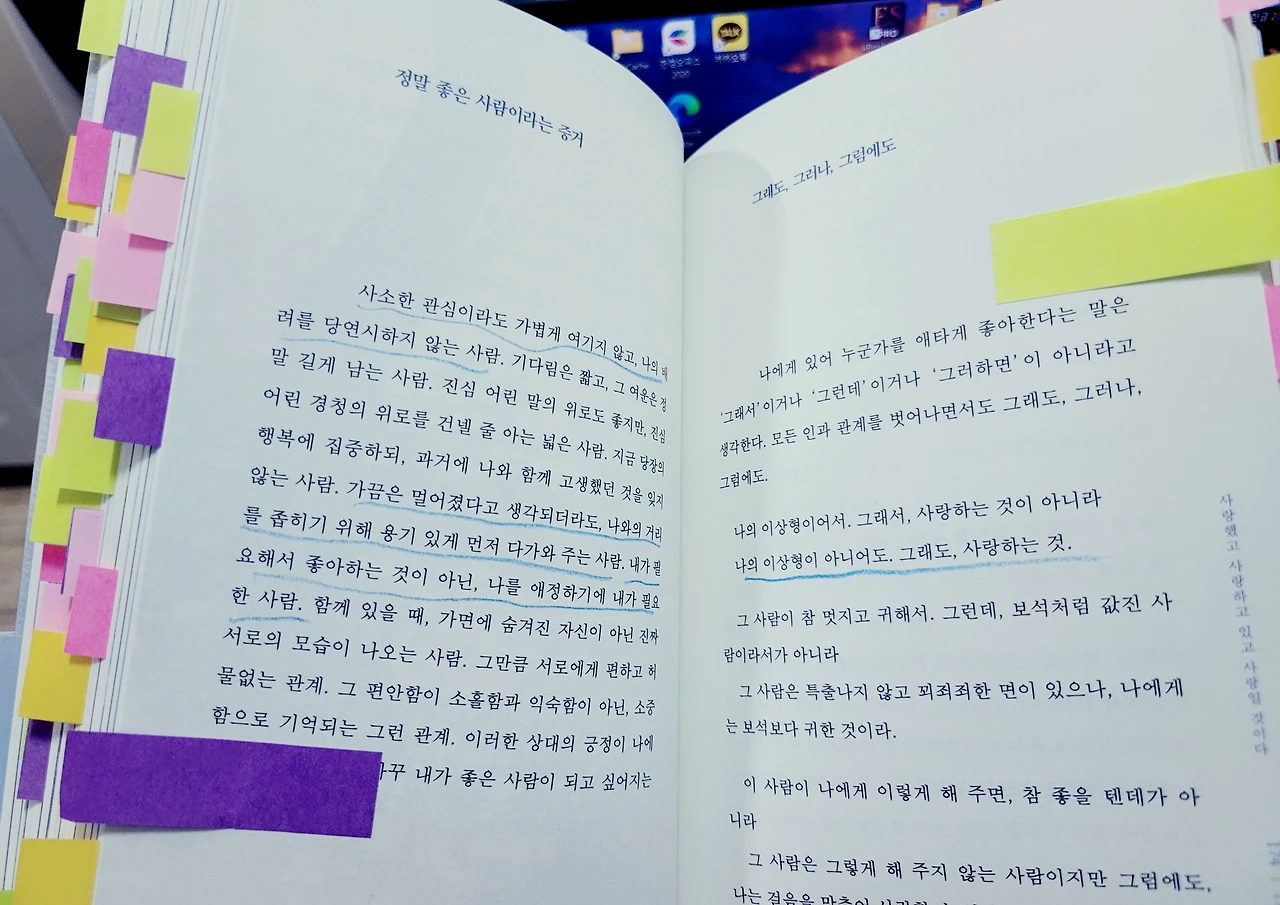 정말 좋은 사람이라는 증거
사소한 관심이라도 가볍게 여기지 않고, 나의 배
려를 당연시하지 않는 사람. 기다림은 짧고, 그 여운은 정
말 길게 남는 사람. 진심 어린 말의 위로도 좋지만, 진심
어린 경청의 위로를 건넬 줄 아는 넓은 사람. 지금 당장의
행복에 집중하되, 과거에 나와 함께 고생했던 것을 잊지
않는 사람. 가끔은 멀어졌다고 생각되더라도, 나와의 거리
를 좁히기 위해 용기 있게 먼저 다가와 주는 사람. 내가 필
요해서 좋아하는 것이 아닌, 나를 애정하기에 내가 필요
한 사람. 함께 있을 때, 가면에 숨겨진 자신이 아닌 진짜
서로의 모습이 나오는 사람. 그만큼 서로에게 편하고 허
물없는 관계. 그 편안함이 소홀함과 익숙함이 아닌, 소중
함으로 기억되는 그런 관계. 이러한 상대의 긍정이 나에
내가 좋은 사람이 되고 싶어지는
그래도, 그러나, 그럼에도
나에게 있어 누군가를 애타게 좋아한다는 말은
‘그래서’이거나 ‘그런데’이거나 ‘그러하면’이 아니라고
생각한다. 모든 인과 관계를 벗어나면서도 그래도, 그러나,
그럼에도.
나의 이상형이어서. 그래서, 사랑하는 것이 아니라
나의 이상형이 아니어도. 그래도, 사랑하는 것.
그 사람이 참 멋지고 귀해서. 그런데, 보석처럼 값진 사
람이라서가 아니라
그 사람은 특출나지 않고 꾀죄죄한 면이 있으나, 나에게
는 보석보다 귀한 것이라.
이 사람이 나에게 이렇게 해 주면, 참 좋을 텐데가 아
니라
그 사람은 그렇게 해 주지 않는 사람이지만 그럼에도,
나는 걸음을 맞추어
사랑했고 사랑하고 있고 사랑일 것이다
174
한컴오피스
2020
카카오톡